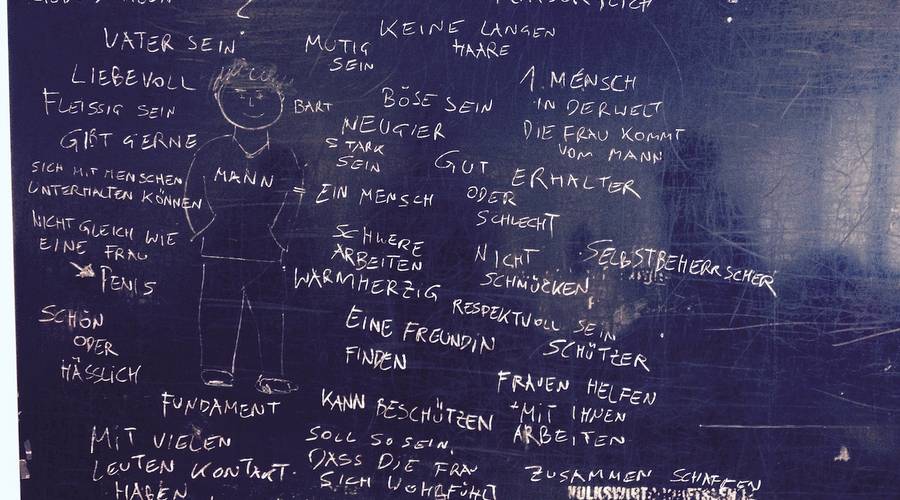 VATER SEIN
LIEBEVOLL
FLEISSIG SEIN
GIBT GERNE
SICH MIT MENSCHEN
UNTERHALTEN KÖNNEN
NICHT GLEICH WIE
EINE FRAU
PENIS
SCHÖN
ODER
HÄSSLICH
FUNDAMENT
MIT VIELEN
LEUTEN KONTAKT
HABEN
MANN =
BART
MUTIG
SEIN
KEINE LANGEN
HAARE
BÖSE SEIN
NEUGIER
STARK
SEIN
EIN MENSCH
SCHWERE
ARBEITEN
WARMHERZIG
EINE FREUNDIN
FINDEN
KANN BESCHÜTZEN
SOLL SO SEIN,
DASS DIE FRAU
SICH WOHLFÜHLT
1. MENSCH
IN DER WELT
DIE FRAU KOMMT
VOM MANN
GUT
ODER
SCHLECHT
ERHALTER
NICHT
SCHMÜCKEN
SELBSTBEHERRSCHER
RESPEKTVOLL SEIN
SCHÜTZER
FRAUEN HELFEN
+ MIT IHNEN
ARBEITEN
ZUSAMMEN SCHAFFEN